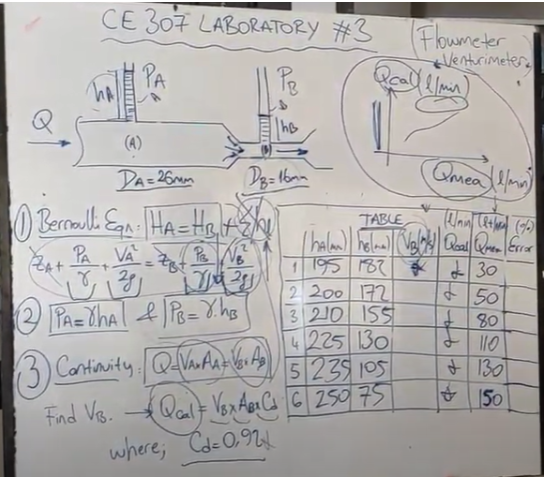 CE 307 LABORATORY #3
(Flowmeter
Venturimeter)
hA PA
A
PB
B
hB
Q
(A)
DA = 26mm
DB = 16mm
Qcal (l/min)
Qmea (l/min)
1 Bernoulli Eqn: HA = HB +
ZA + PA/γ + VA²/2g = ZB + PB/γ + VB²/2g
2 PA = γ.hA & PB = γ.hB
3 Continuity: Q = VA×AA = VB×AB
Find VB. → Qcal = VB×AB×Cd
where; Cd = 0,92
TABLE
hA(mm) hB(mm) VB(m/s) (l/min) Qcal (lt/min) Qmea (%) Error
1 195 182 30
2 200 172 50
3 210 155 80
4 225 130 110
5 235 105 130
6 250 75 150